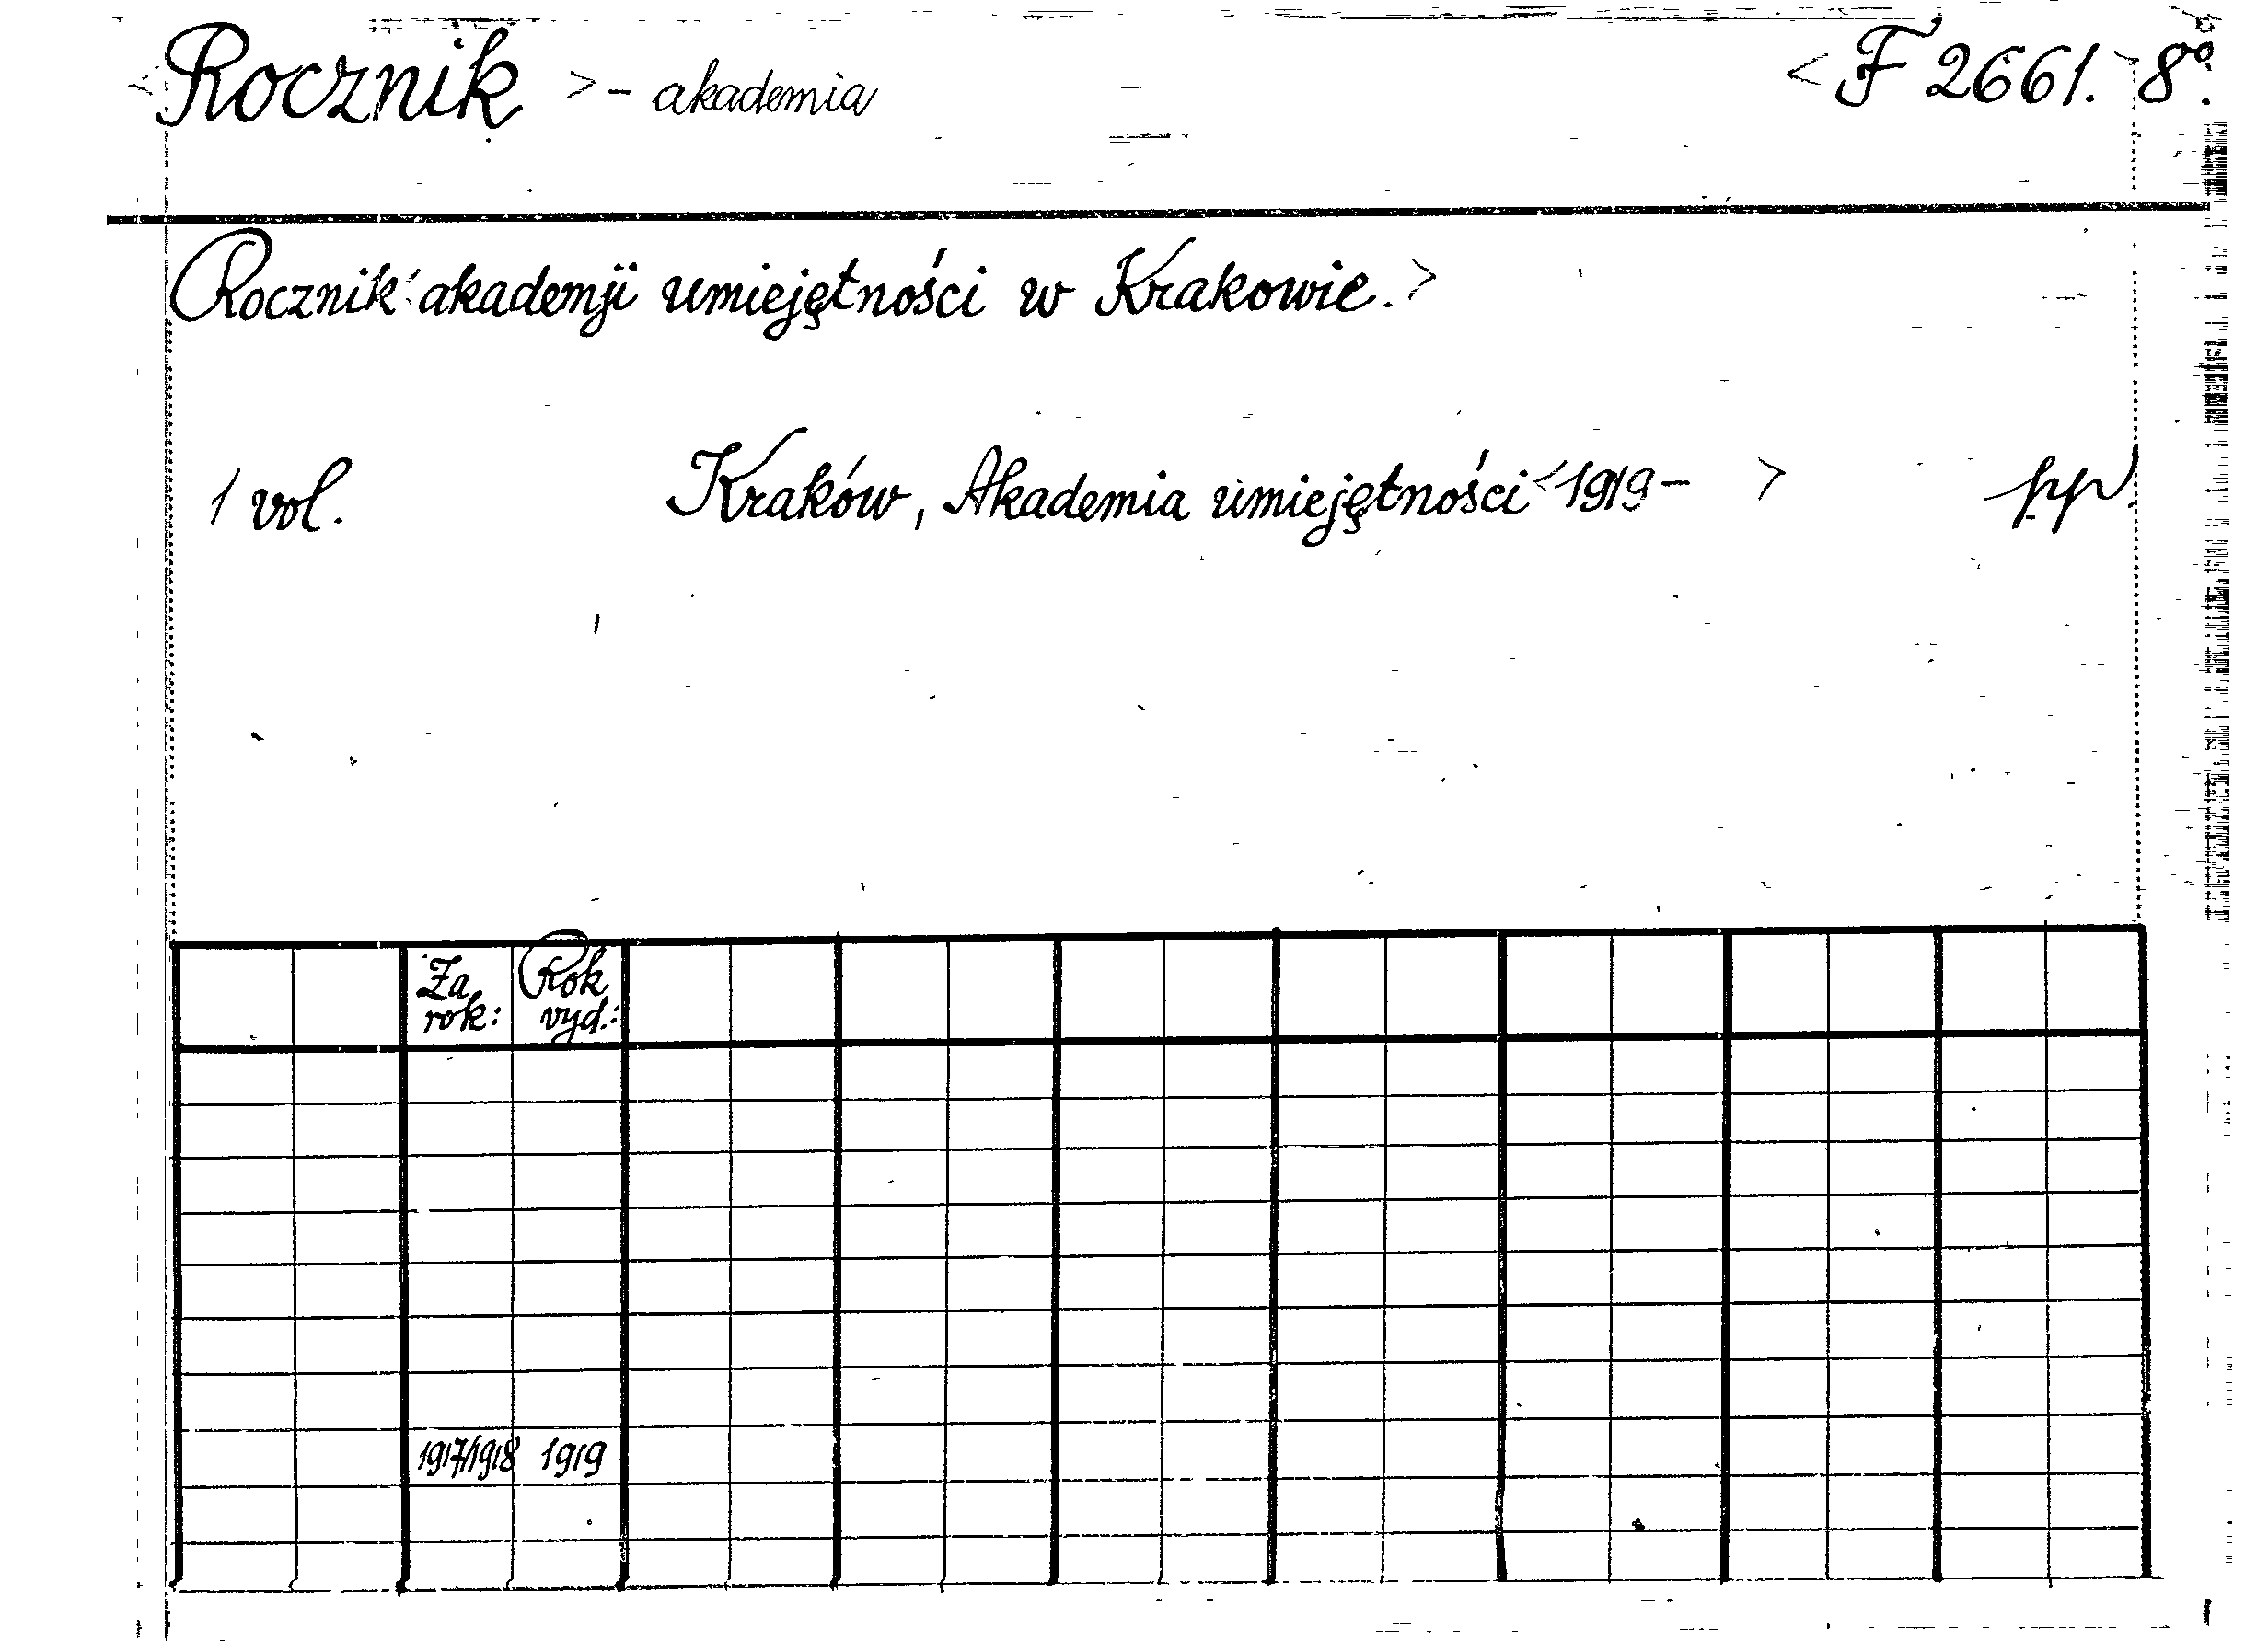 <Rocznik > - akademia <F 2661. > 8°.
Rocznik akademji umiejętności w Krakowie.>
1 vol. Kraków, Akademia umiejętności <1919- > pp.
Za Rok
rok: vyd.:
1917/1918 1919